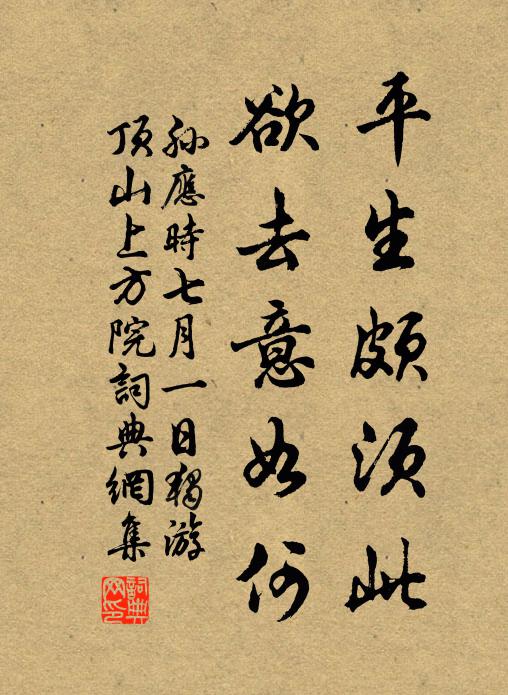 平生頗須此
欲去意如何
孫應時七月一日獨游
頂山上方院詞典網集
詞典網印